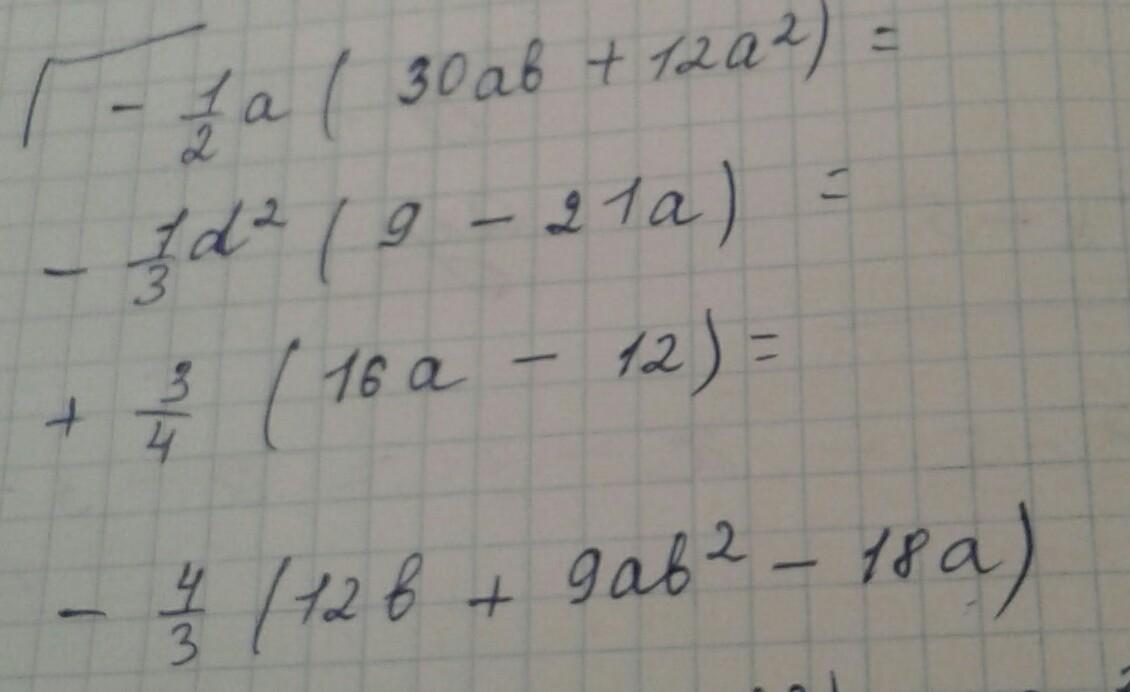 - 1/2 a ( 30ab + 12a²) =
- 1/3 d² ( 9 - 21a) =
+ 3/4 ( 16a - 12) =
- 4/3 (12b + 9ab² - 18a)